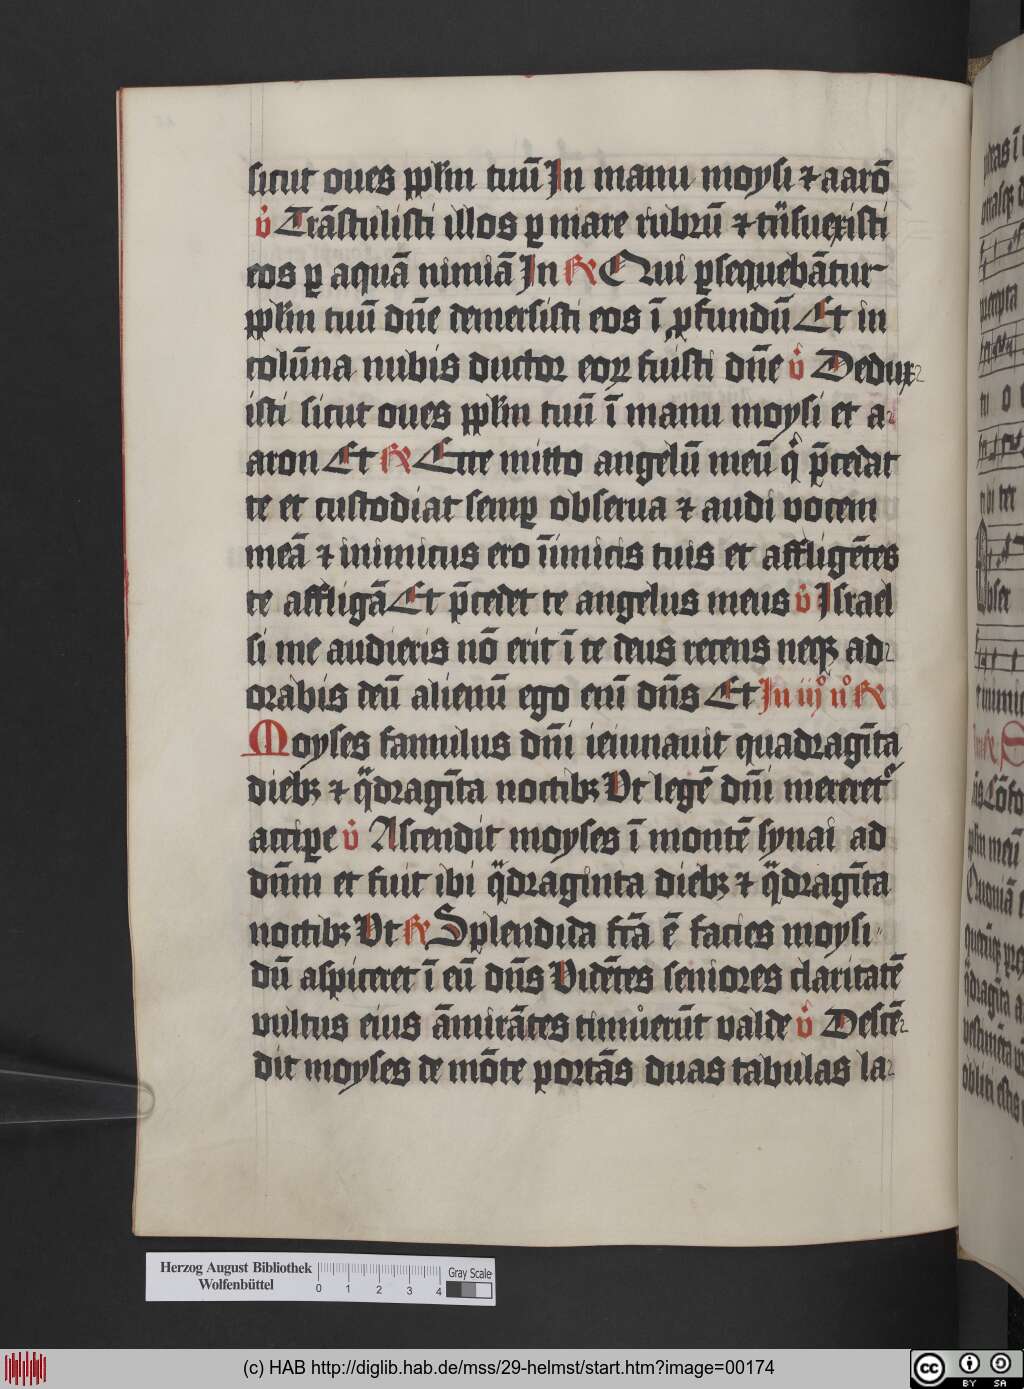 sicut oues pplm̄ tuū In manu moysi ⁊ aarō
v̊ Trāstulisti illos ꝑ mare rubrū ⁊ tn̄suexisti
eos ꝑ aquā nimiā In ℟ Qui ꝑsequebātur
pplm̄ tuū dn̄e demersisti eos ī ꝓfundū Et in
colūna nubis ductor eoꝝ fuisti dn̄e v̊ Dedux
isti sicut oues pplm̄ tuū ī manu moysi et a
aron Et ℟ Ecce mitto angelū meū q̇ p̄cedat
te et custodiat semꝑ obserua ⁊ audi vocem
meā ⁊ inimicus ero īimicis tuis et affligētes
te affligā Et p̄cedet te angelus meus v̊ Israel
si me audieris nō erit ī te deus recens neqꝫ ad
orabis deū alienū ego enī dn̄s Et In iij̊ n̊ ℟
Moyses famulus dn̄i ieiunauit quadragīta
diebꝫ ⁊ q̈dragīta noctibꝫ Vt legē dn̄i mereret᷑
accipe v̊ Ascendit moyses ī montē synai ad
dn̄m et fuit ibi q̈draginta diebꝫ ⁊ q̈dragīta
noctibꝫ Vt ℟ Splendida fc̄a ē facies moysi
dū aspiceret ī eū dn̄s Vidētes seniores claritatē
vultus eius āmirātes timuerūt valde v̊ Descē
dit moyses de mōte portās duas tabulas la
Herzog August Bibliothek
Wolfenbüttel
0 1 2 3 4
Gray Scale
(c) HAB http://diglib.hab.de/mss/29-helmst/start.htm?image=00174
cc BY SA